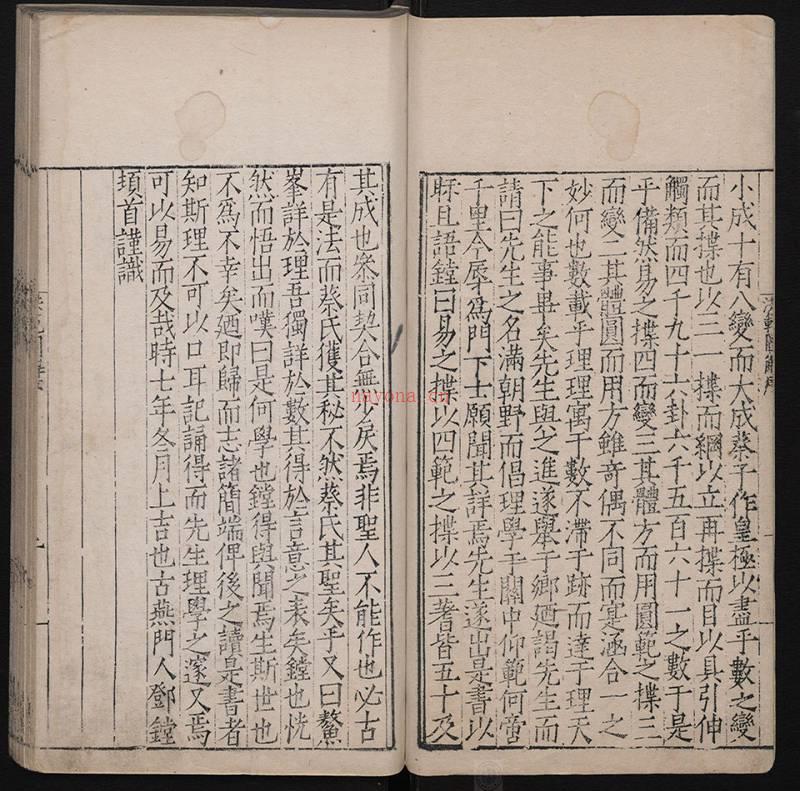 小成十有八變而大成蔡子作皇極以盡乎數之變
而其揲也以三一揲而綱以立再揲而目以具引伸
觸類而四千九十六卦六千五百六十一之數于是
乎備然易之揲四而變三其體方而用圓範之揲三
而變二其體圓而用方雖奇偶不同而寔涵合一之
妙何也數載乎理理寓于數不滯于跡而達于理天
下之能事畢矣先生與之進遂舉于鄉廼謁先生而
請曰先生之名滿朝野而倡理學于關中仰範何啻
千里今辱爲門下士願聞其詳焉先生遂出是書以
眎且語鏜曰易之揲以四範之揲以三蓍皆五十及
其成也衆同契合無少戾焉非聖人不能作也必古
有是法而蔡氏獲其秘不然蔡氏其聖矣乎又曰鰲
峯詳於理吾獨詳於數其得於言意之表矣鏜也恍
然而悟出而嘆曰是何學也鏜得與聞焉生斯世也
不爲不幸矣廼即歸而志諸簡端俾後之讀是書者
知斯理不可以口耳記誦得而先生理學之邃又焉
可以易而及哉時七年冬月上吉也古燕門人鄧鏜
頊首謹識
nayona.cn